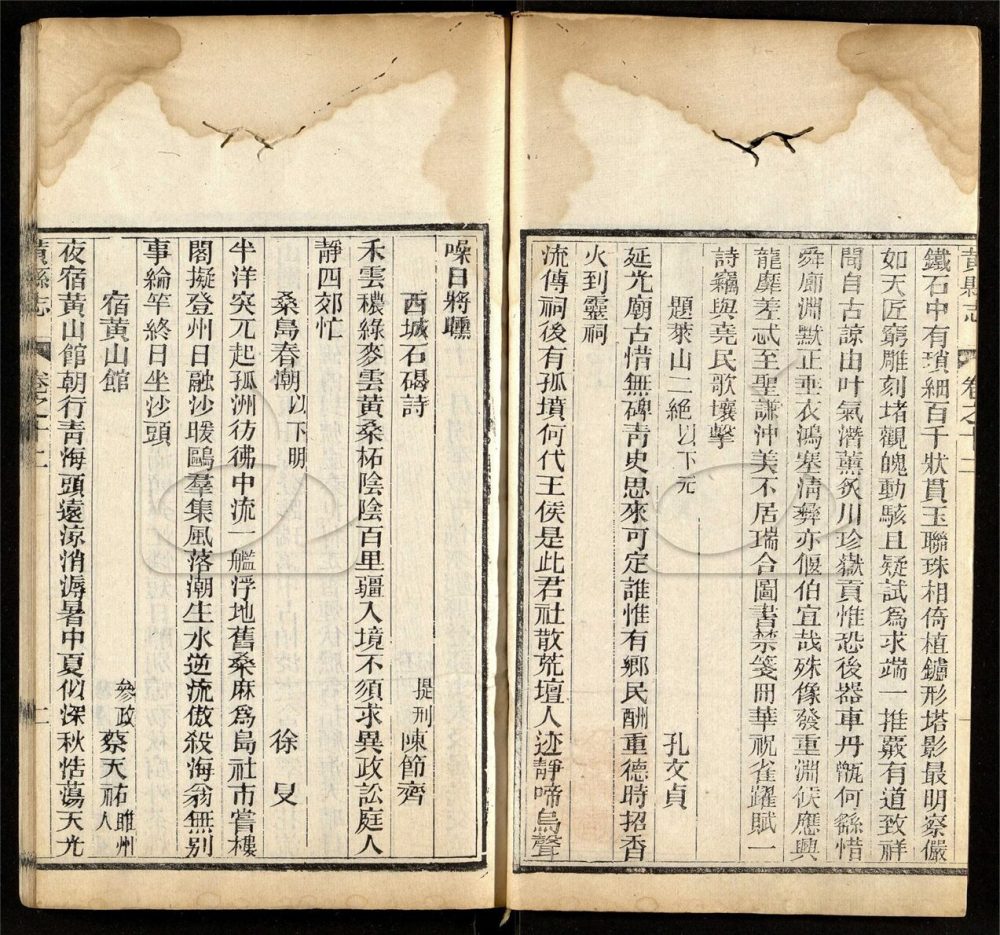 黃縣志 卷之十二
鐵石中有瑣細百千狀貫玉聯珠相倚植鑪形塔影最明察儼
如天匠窮雕刻堵觀魄動駭且疑試爲求端一推覈有道致祥
聞自古諒由叶氣潛薰炙川珍嶽貢惟恐後器車丹甑何繇惜
舜廊淵默正垂衣鴻塞淸彝亦偃伯宜哉殊像發重淵候應興
龍靡差忒至聖謙沖美不居瑞合圖書禁箋冊華祝雀躍賦一
詩竊與堯民歌壤擊
題萊山二絕以下元 孔文貞
延光廟古惜無碑靑史思來可定誰惟有鄉民酬重德時招香
火到靈祠
流傳祠後有孤墳何代王侯是此君社散荒壇人迹靜啼烏聲
噪日將曛
西城石碣詩 提刑陳節齊
禾雲穠綠麥雲黃桑柘陰陰百里疆入境不須求異政訟庭人
靜四郊忙
桑島春潮以下明 徐旻
半洋突兀起孤洲彷彿中流一艦浮地舊桑麻爲島社市嘗樓
閣擬登州日融沙暖鷗羣集風落潮生水逆流傲殺海翁無別
事綸竿終日坐沙頭
宿黃山館 參政蔡天祐睢州人
夜宿黃山館朝行靑海頭遠涼消溽暑中夏似深秋恬蕩天光
黃縣志 卷之十二 二